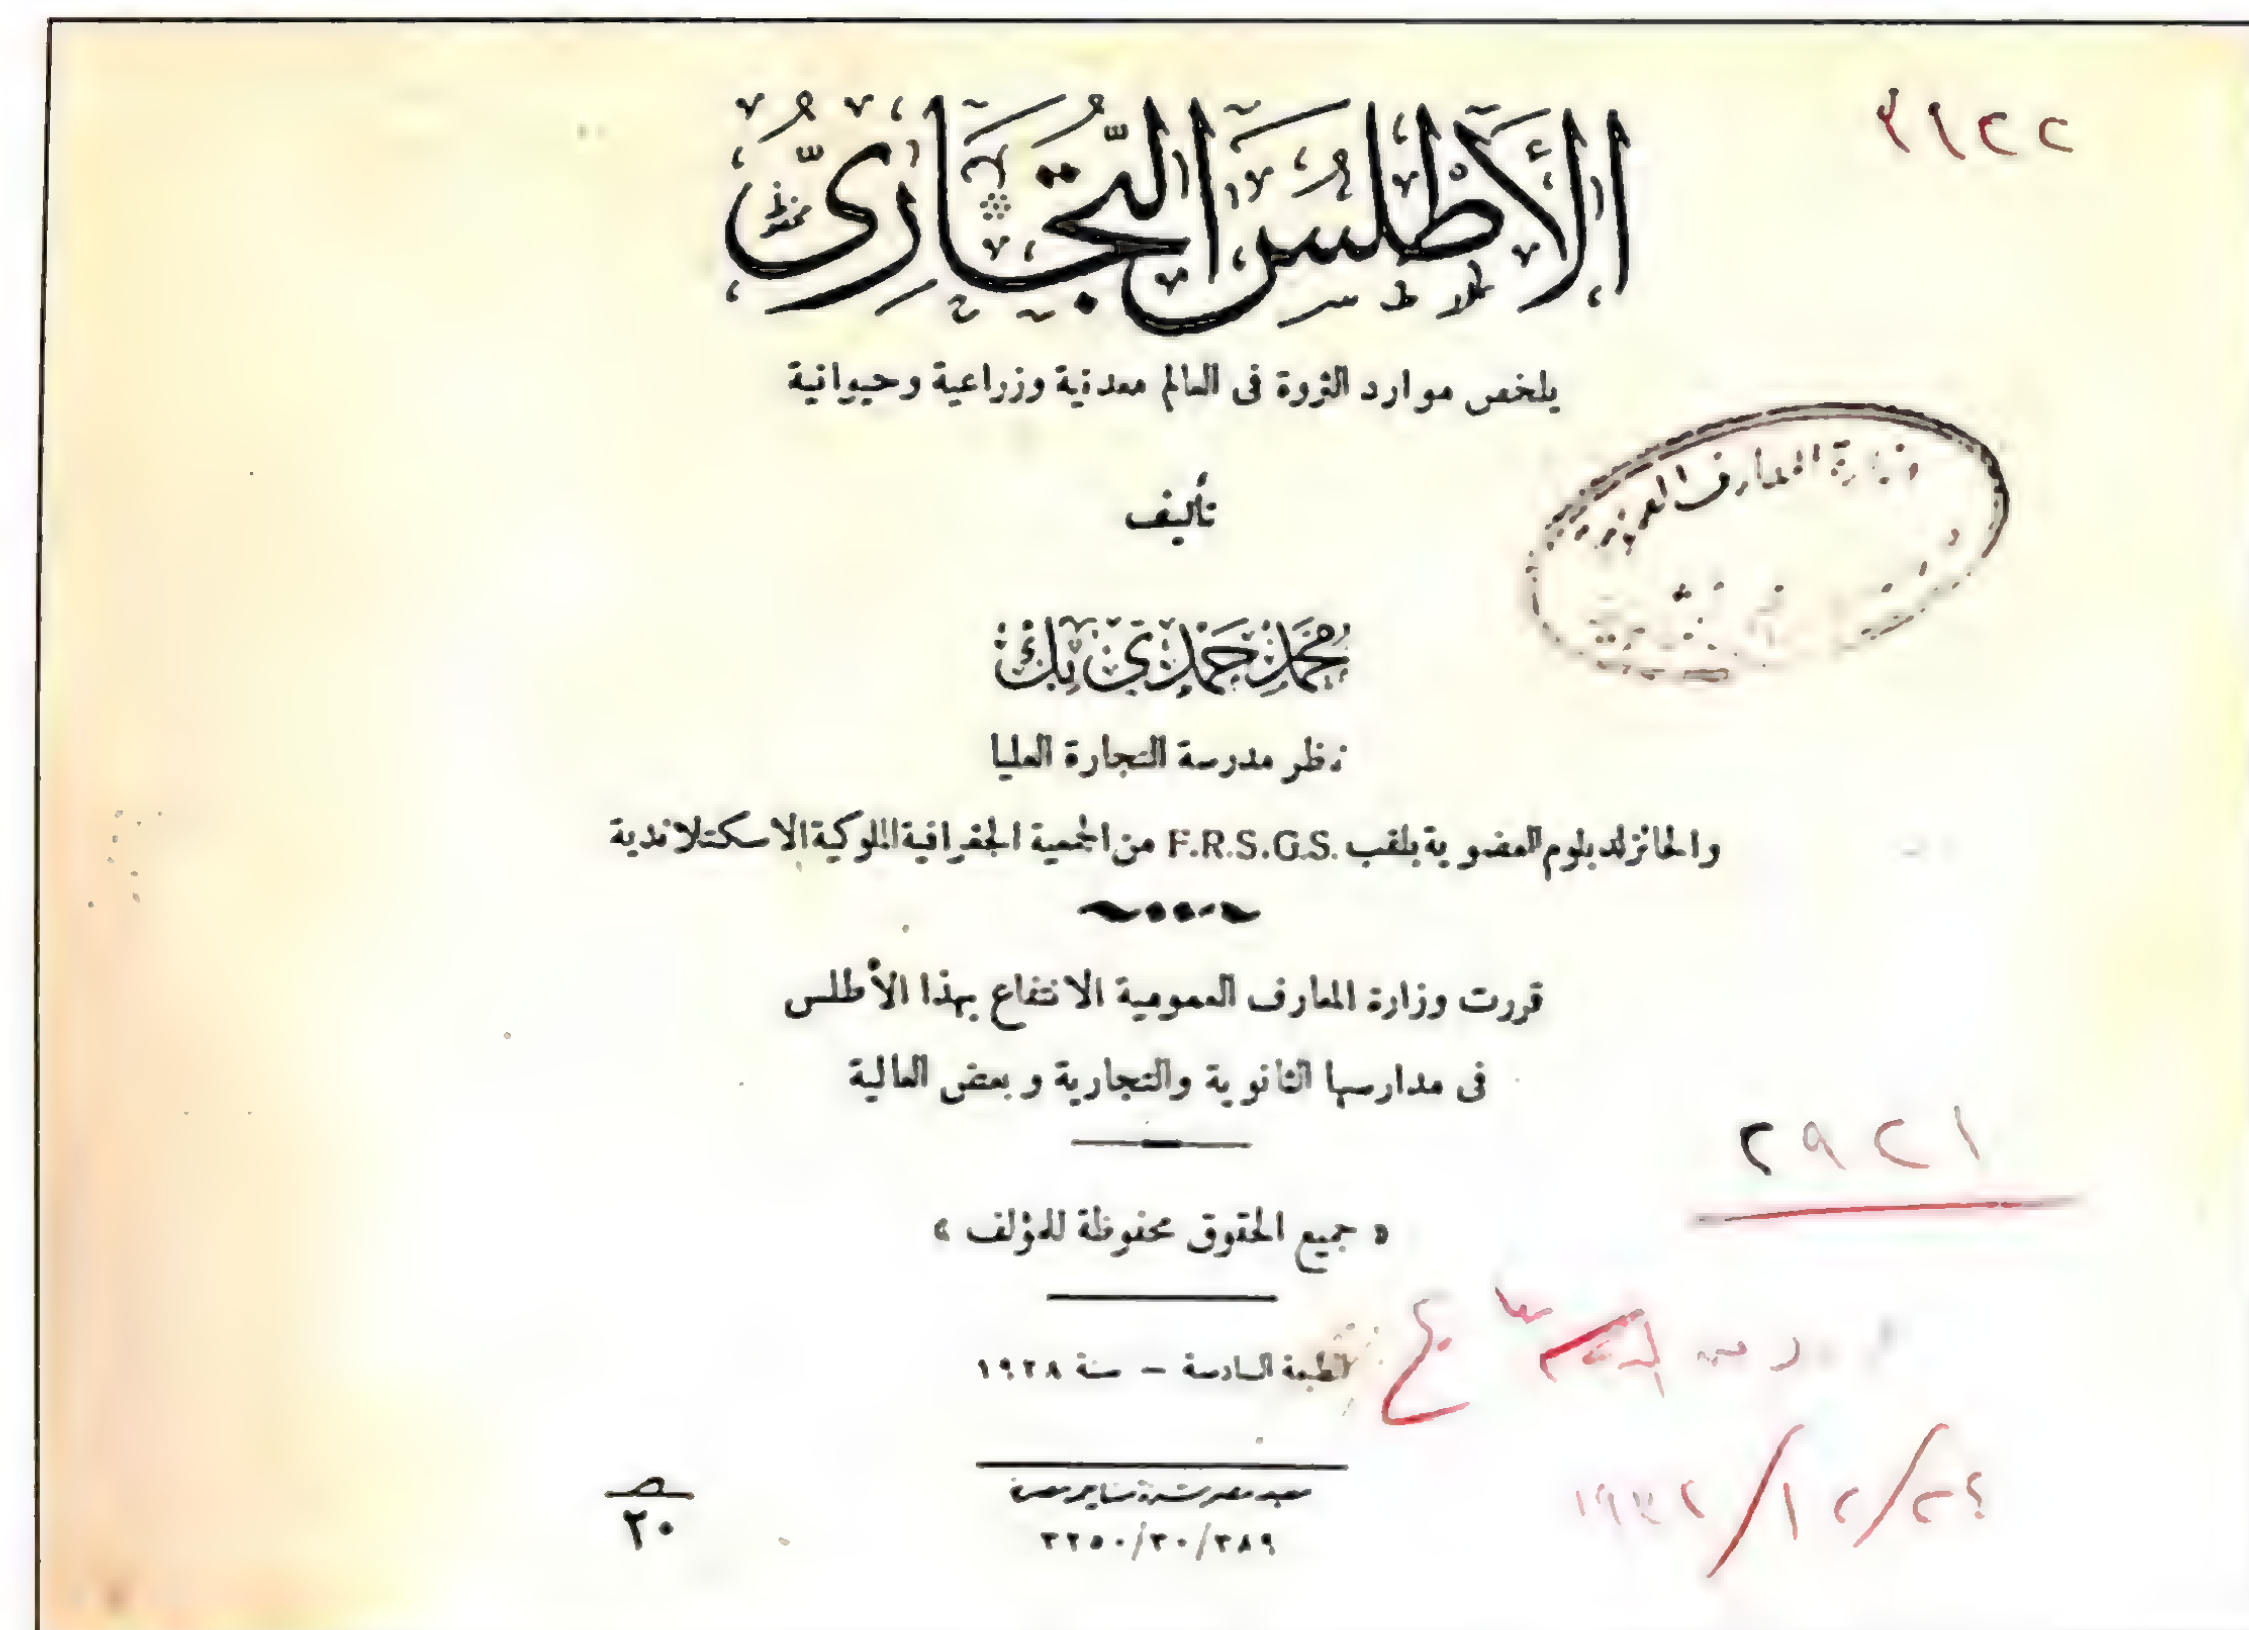 ٢٩٢٢
الأَطْلَسُ التِّجَارِىُّ
محفوظ
يلخص موارد الثروة فى العالم معدنية وزراعية وحيوانية
وزارة المعارف العمومية
تأليف
مُحَمَّد حَمْدِي بك
ناظر مدرسة التجارة العليا
والحائز لدبلوم العضوية بلقب F.R.S.G.S. من الجمعية الجغرافية الملوكية الاسكتلاندية
قررت وزارة المعارف العمومية الانتفاع بهذا الأطلس
فى مدارسها الثانوية والتجارية وبعض العالية
٢٩٢١
« جميع الحقوق محفوظة للمؤلف »
الطبعة السادسة – سنة ١٩٢٨
صـ
٢٠